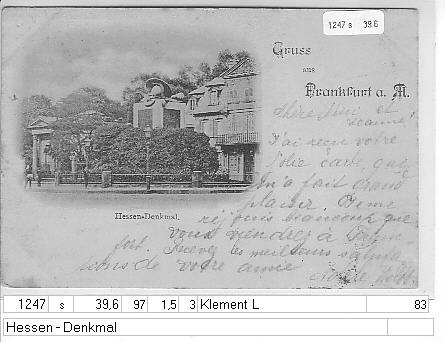 1247 s 39.6
Gruss
aus
Frankfurt a. M.
Chère Mimi et
Jeanne,
J'ai reçu votre
jolie carte, qui
m'a fait grand
plaisir.
je suis beaucoup que
vous viendrez à
fort. Recevez les meilleurs saluta
tions de votre amie
Hessen-Denkmal.
1247 s 39,6 97 1,5 3 Klement L 83
Hessen - Denkmal